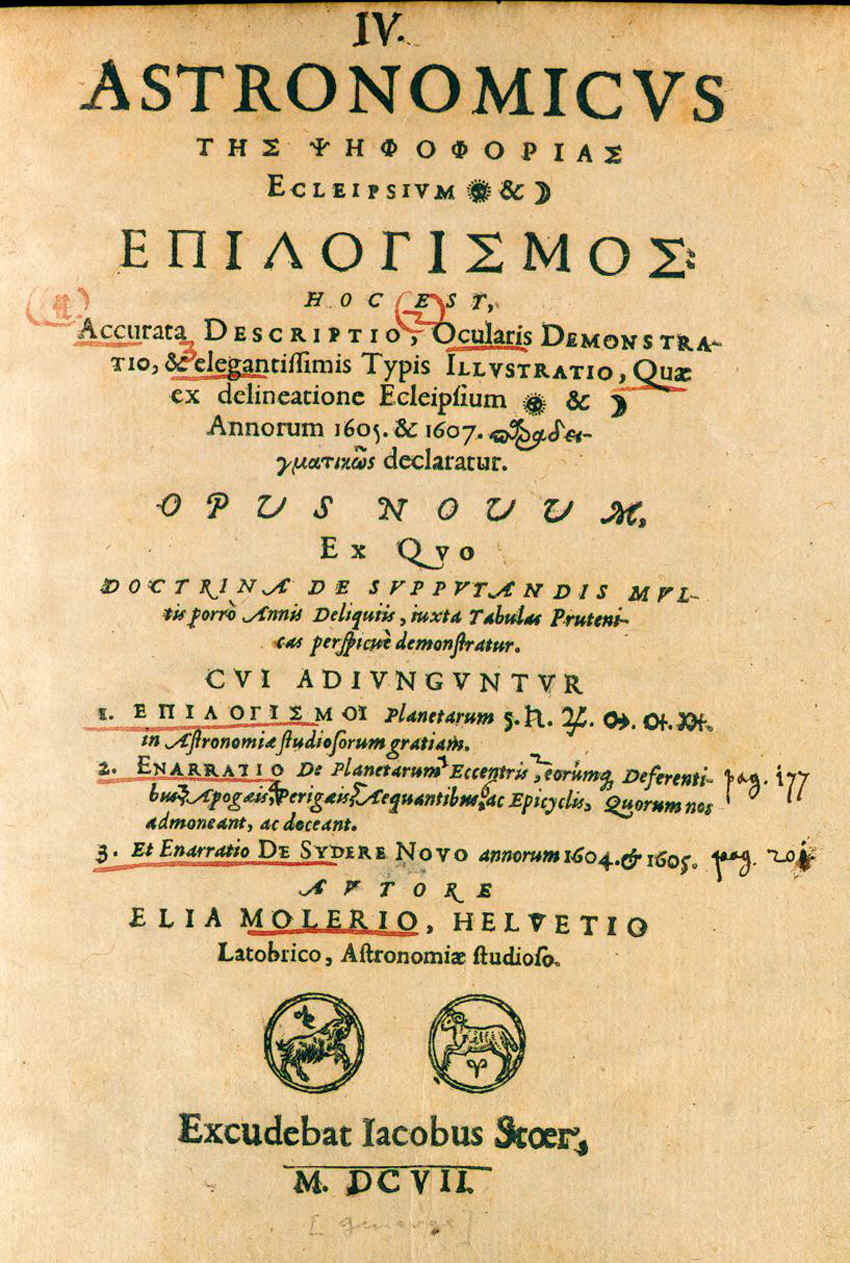 IV.
ASTRONOMICVS
ΤΗΣ ΨΗΦΟΦΟΡΙΑΣ
ECLEIPSIVM ☉ & ☽
ΕΠΙΛΟΓΙΣΜΟΣ:
HOC EST,
Accurata DESCRIPTIO, Ocularis DEMONSTRA-
TIO, & elegantiſſimis Typis ILLVSTRATIO, Quæ
ex delineatione Ecleipſium ☉ & ☽
Annorum 1605. & 1607. παραδει-
γματικῶς declaratur.
OPUS NOUUM,
EX QVO
DOCTRINA DE SVPPVTANDIS MVL-
tis porrò Annis Deliquiis, iuxta Tabulas Pruteni-
cas perſpicuè demonſtratur.
CVI ADIVNGVNTVR
1. ΕΠΙΛΟΓΙΣΜΟΙ Planetarum 5. ♄. ♃. ♂. ♀. ☿.
in Aſtronomiæ ſtudioſorum gratiam.
2. ENARRATIO De Planetarum Eccentris, eorumq́ Deferenti- pag. 177
bus, Apogæis, Perigæis, Aequantibus, ac Epicyclis, Quorum nos
admoneant, ac doceant.
3. Et Enarratio DE SYDERE NOVO annorum 1604. & 1605. pag.
AVTORE
ELIA MOLERIO, HELVETIO
Latobrico, Aſtronomiæ ſtudioſo.
Excudebat Iacobus Stoer,
M. DCVII.